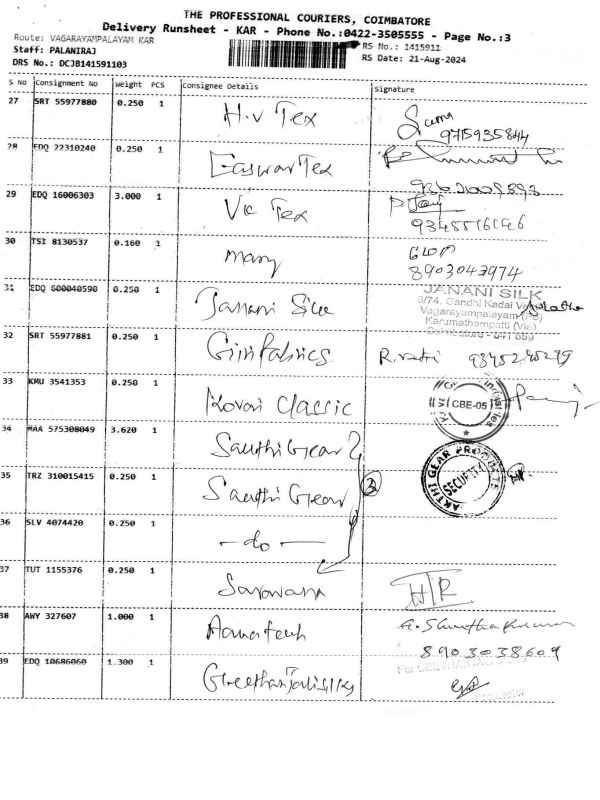 THE PROFESSIONAL COURIERS, COIMBATORE
Delivery Runsheet - KAR - Phone No.:0422-3505555 - Page No.:3
Route: VAGARAYAMPALAYAM KAR
RS No.: 1415911
Staff: PALANIRAJ
RS Date: 21-Aug-2024
DRS No.: DCJB141591103
S No Consignment No Weight PCS Consignee Details Signature
27 SRT 55977880 0.250 1 H.V Tex
28 EDQ 22310240 0.250 1 Easwar Tex
29 EDQ 16006303 3.000 1 Vic Tex
30 TSI 8130537 0.160 1 mary
8903043974
31 EDQ 600040590 0.250 1 Janani Silk
JANANI SILK
3/74, Gandhi Kadai
Vagarayampalayam
Karumathampatti (Via)
32 SRT 55977881 0.250 1 Giri Fabrics
33 KMU 3541353 0.250 1 Kovai Classic CBE-05
34 MAA 575308049 3.620 1 Santhi Gear 2
35 TRZ 310015415 0.250 1 Santhi Gear 3
GEAR PRODUCTS
SECURITY
36 SLV 4074420 0.250 1 - do -
37 TUT 1155376 0.250 1 Saravana
38 AWY 327607 1.000 1
8903038609
39 EDQ 10686060 1.300 1